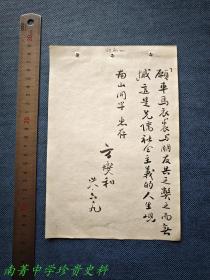 「願車馬衣裘与朋友共之獘之而無
憾」這是先儒社会主義的人生观
為山同学惠存
方燮和
卅八、六、九
南菁中学珍贵史料